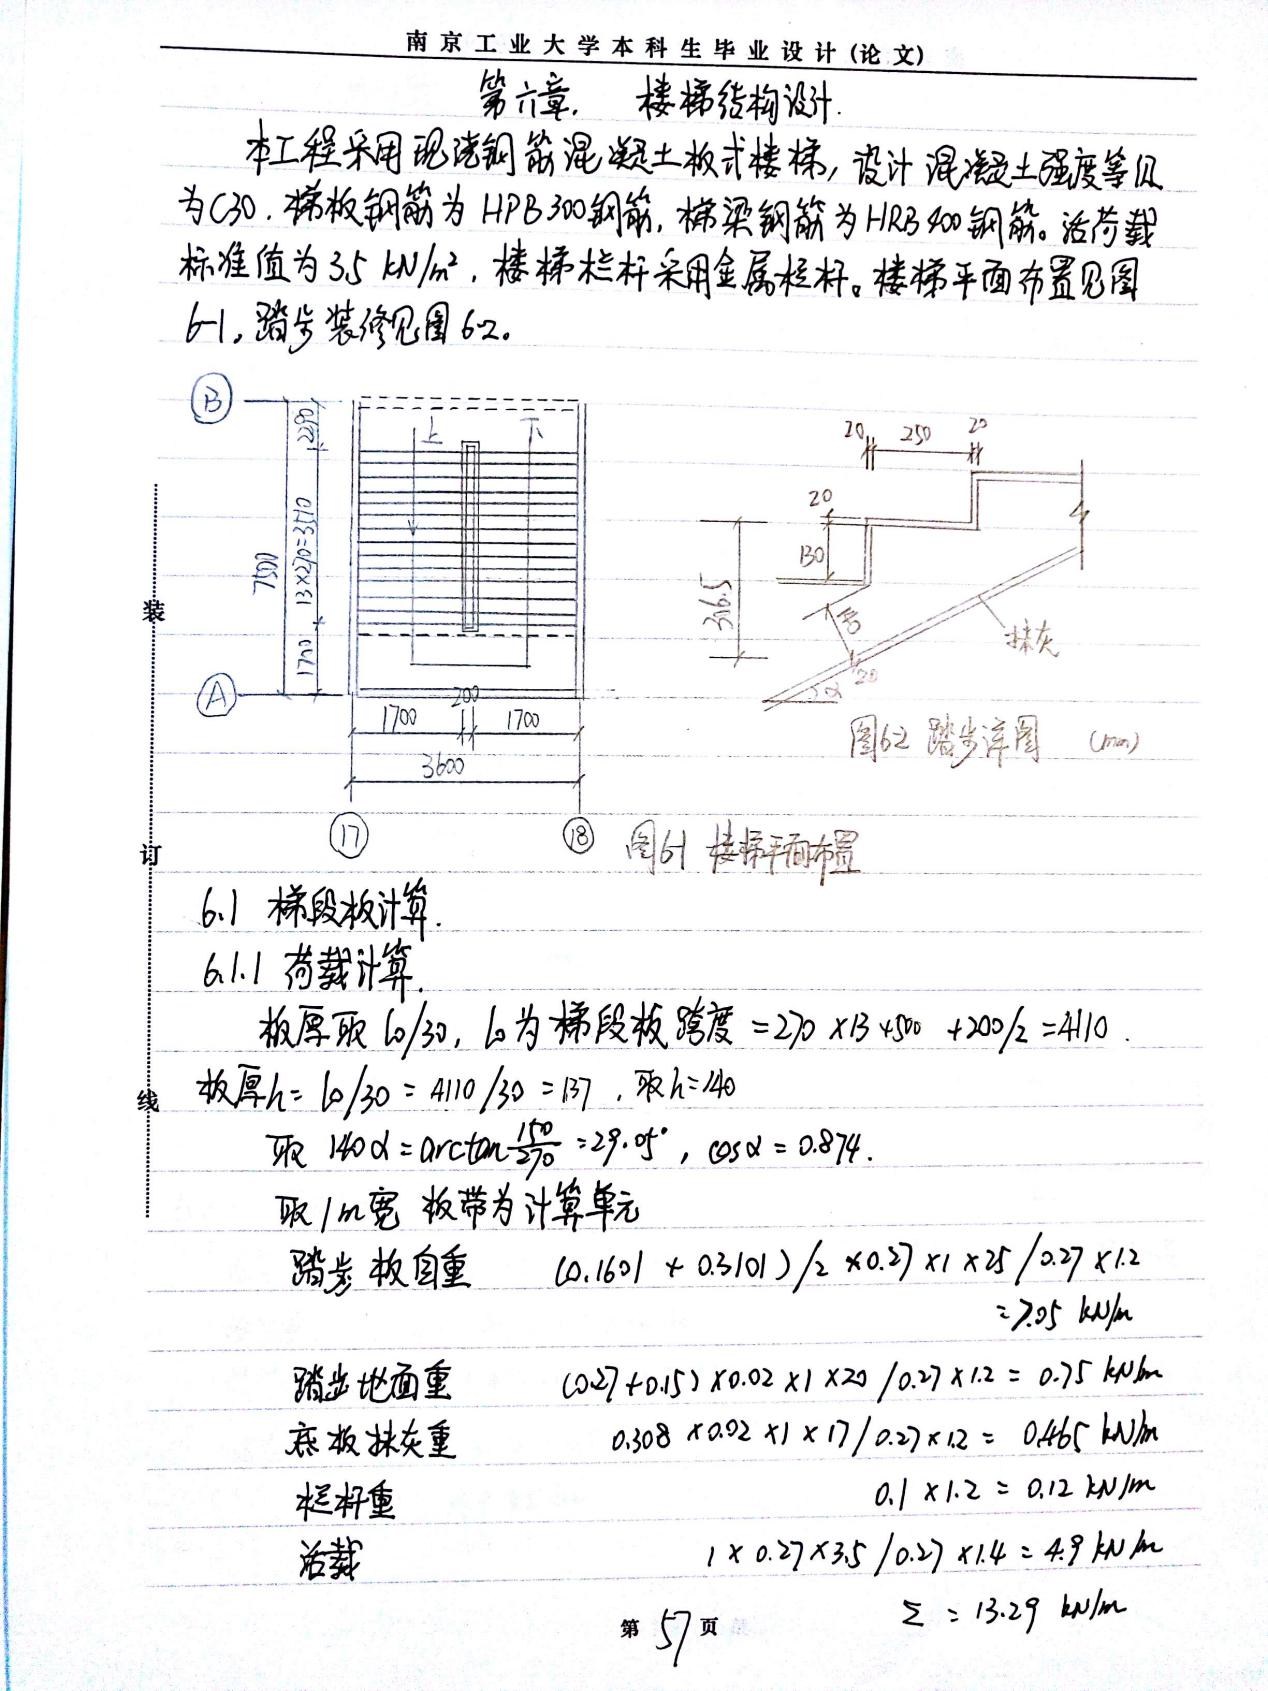 南京工业大学本科生毕业设计(论文)
第六章. 楼梯结构设计.
本工程采用现浇钢筋混凝土板式楼梯, 设计混凝土强度等级
为C30. 梯板钢筋为HPB300钢筋, 梯梁钢筋为HRB400钢筋。活荷载
标准值为3.5 kN/m², 楼梯栏杆采用金属栏杆。楼梯平面布置见图
6-1, 踏步装修见图6-2。
B
2290
13×270=3510
1700
7500
A
上
下
200
1700
1700
3600
17
18
图6-1 楼梯平面布置
20
250
20
20
130
316.5
20
α
抹灰
图6-2 踏步详图 (mm)
装
订
线
6.1 梯段板计算.
6.1.1 荷载计算.
板厚取 l₀/30, l₀为梯段板跨度 = 270×13+500+200/2 = 4110.
板厚h = l₀/30 = 4110/30 = 137, 取h=140
取 140 α = arctan 150/270 = 29.05°, cosα = 0.874.
取1m宽板带为计算单元
踏步板自重 (0.1601 + 0.3101)/2 ×0.27×1×25/0.27×1.2
=7.05 kN/m
踏步地面重 (0.27+0.15)×0.02×1×20/0.27×1.2 = 0.75 kN/m
底板抹灰重 0.308×0.02×1×17/0.27×1.2 = 0.465 kN/m
栏杆重 0.1×1.2 = 0.12 kN/m
活载 1×0.27×3.5/0.27×1.4 = 4.9 kN/m
Σ = 13.29 kN/m
第 57 页